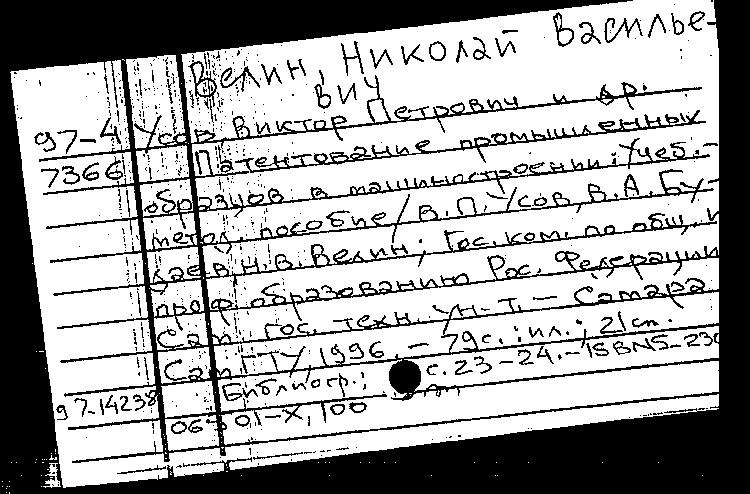 Велин, Николай Василье-
вич
97-4 Усов, Виктор Петрович и др.
7366 Патентование промышленных
образцов в машиностроении: Учеб.-
метод. пособие / В.П. Усов, В.А. Бу-
даев, Н.В. Велин; Гос. ком. по общ. и
проф. образованию Рос. Федерации,
Сам. гос. техн. ун-т. — Самара
СамГТУ, 1996. — 79 с. : ил.; 21 см.
97-14238 Библиогр.: с. 23-24. — ISBN 5-230
06301-X, 100